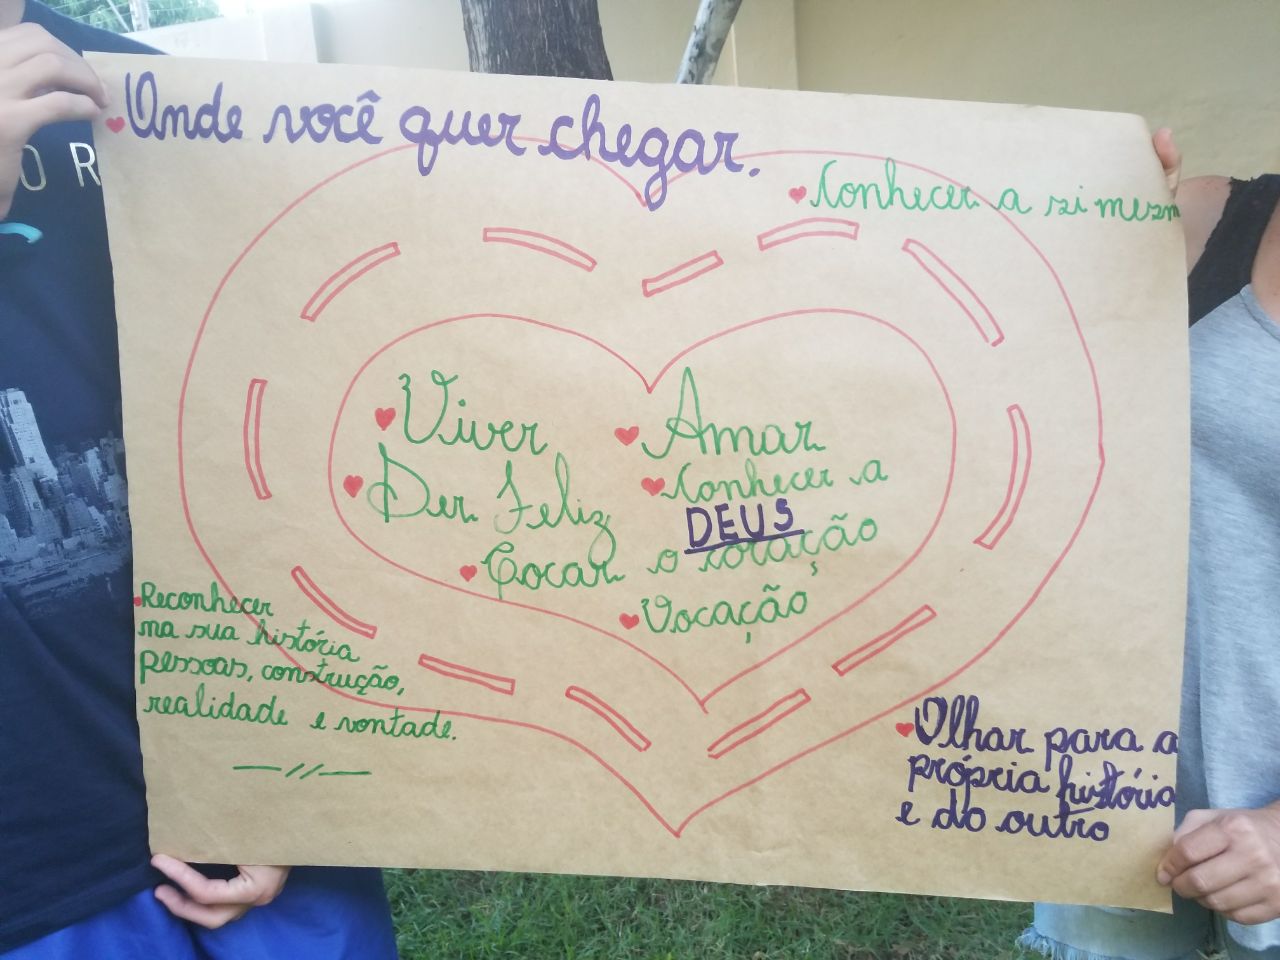 Onde você quer chegar.
Conhecer a si mesm
Viver
Amar
Ser Feliz
Conhecer a
DEUS
Tocar o coração
Vocação
Reconhecer
na sua história
pessoas, construção,
realidade e vontade.
Olhar para a
própria história
e do outro
O R